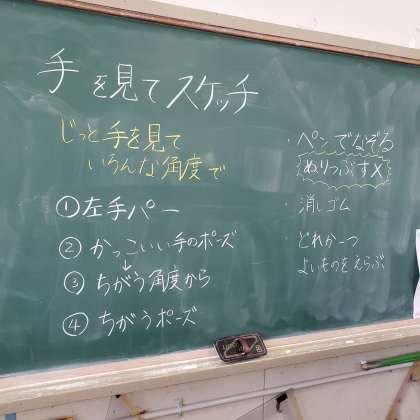 手を見てスケッチ
じっと手を見て
いろんな角度で
①左手パー
②かっこいい手のポーズ
↓
③ちがう角度から
④ちがうポーズ
・ペンでなぞる
ぬりつぶす×
・消しゴム
・どれか一つ
よいものをえらぶ